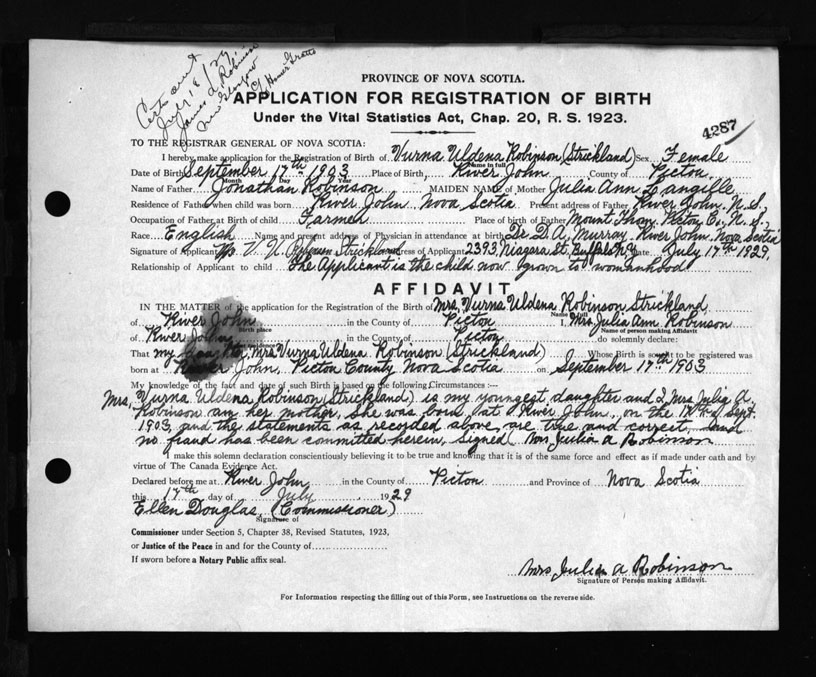 Cert sent
July 18/29
James L Robinson
New Glasgow
c/o Homer Gratto
PROVINCE OF NOVA SCOTIA.
APPLICATION FOR REGISTRATION OF BIRTH
Under the Vital Statistics Act, Chap. 20, R. S. 1923.
4287
TO THE REGISTRAR GENERAL OF NOVA SCOTIA:
I hereby make application for the Registration of Birth of Vurna Uldena Robinson (Strickland) Sex Female
Name in full
Date of Birth September 17th 1903 Place of Birth, River John County of Pictou
Month Day Year
Name of Father Jonathan Robinson MAIDEN NAME of Mother Julia Ann Langille
Residence of Father when child was born River John Nova Scotia Present address of Father River John. N. S.,
Occupation of Father at Birth of child Farmer Place of birth of Father Mount Thom, Pictou Co., N. S.,
Race English Name and present address of Physician in attendance at birth Dr. D. A. Murray, River John. Nova Scotia
Signature of Applicant Mrs V. U. Strickland Address of Applicant 2393, Niagara St, Buffalo N.Y. Date July 17th 1929
Relationship of Applicant to child The Applicant is the child now grown to womanhood
AFFIDAVIT
IN THE MATTER of the application for the Registration of the Birth of Mrs, Vurna Uldena Robinson Strickland
Name in full
of River John in the County of Pictou I, Mrs Julia Ann Robinson
Birth place Name of person making Affidavit
of River John in the County of Pictou do solemnly declare:
residence
That my daughter, Mrs Vurna Uldena Robinson (Strickland) Whose Birth is sought to be registered was
born at River John, Pictou County Nova Scotia on September 17th 1903
My knowledge of the fact and date of such Birth is based on the following Circumstances :-
Mrs, Vurna Uldena Robinson (Strickland) is my youngest daughter and I Mrs Julia A.
Robinson am her mother, She was born at River John, on the 17th of Sept.
1903, and the statements as recorded above, are true and correct, and
no fraud has been committed herein, Signed Julia A Robinson
I make this solemn declaration conscientiously believing it to be true and knowing that it is of the same force and effect as if made under oath and by
virtue of The Canada Evidence Act.
Declared before me at River John in the County of Pictou and Province of Nova Scotia
this 17th day of July 1929
Ellen Douglas, (Commissioner)
Signature of
Commissioner under Section 5, Chapter 38, Revised Statutes, 1923,
or Justice of the Peace in and for the County of
If sworn before a Notary Public affix seal.
Mrs Julia A Robinson
Signature of Person making Affidavit.
For Information respecting the filling out of this Form, see Instructions on the reverse side.